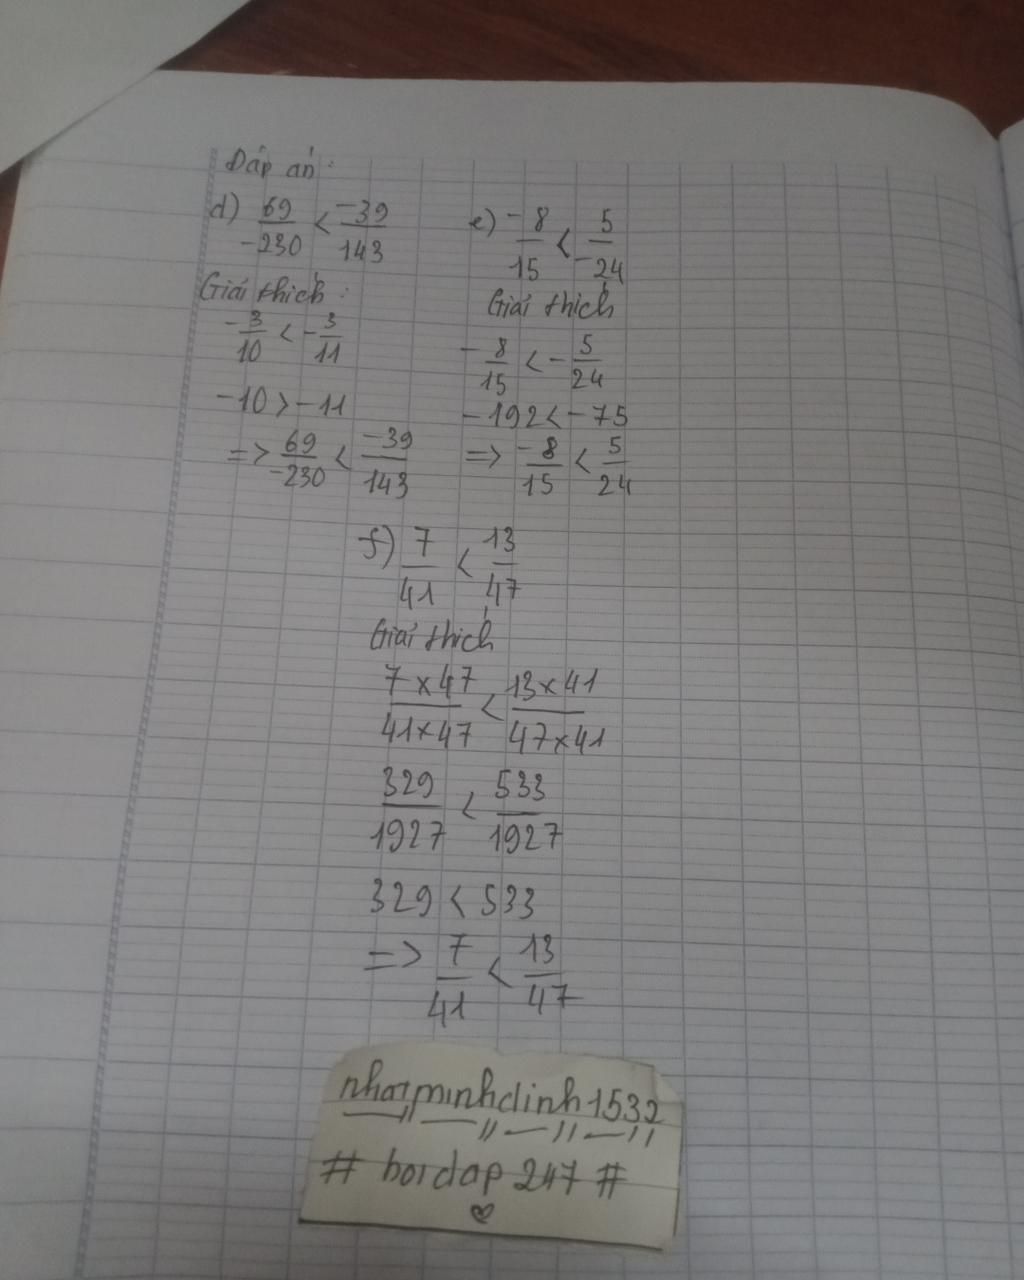 Đáp án:
d) 69/-230 < -39/143
Giải thích:
-3/10 < -3/11
-10 > -11
=> 69/-230 < -39/143
e) -8/15 < 5/-24
Giải thích
-8/15 < -5/24
-192 < -75
=> -8/15 < 5/24
f) 7/41 < 13/47
Giải thích
7x47/41x47 < 13x41/47x41
329/1927 < 533/1927
329 < 533
=> 7/41 < 13/47
nhatminhdinh1532
# hoidap 247 #